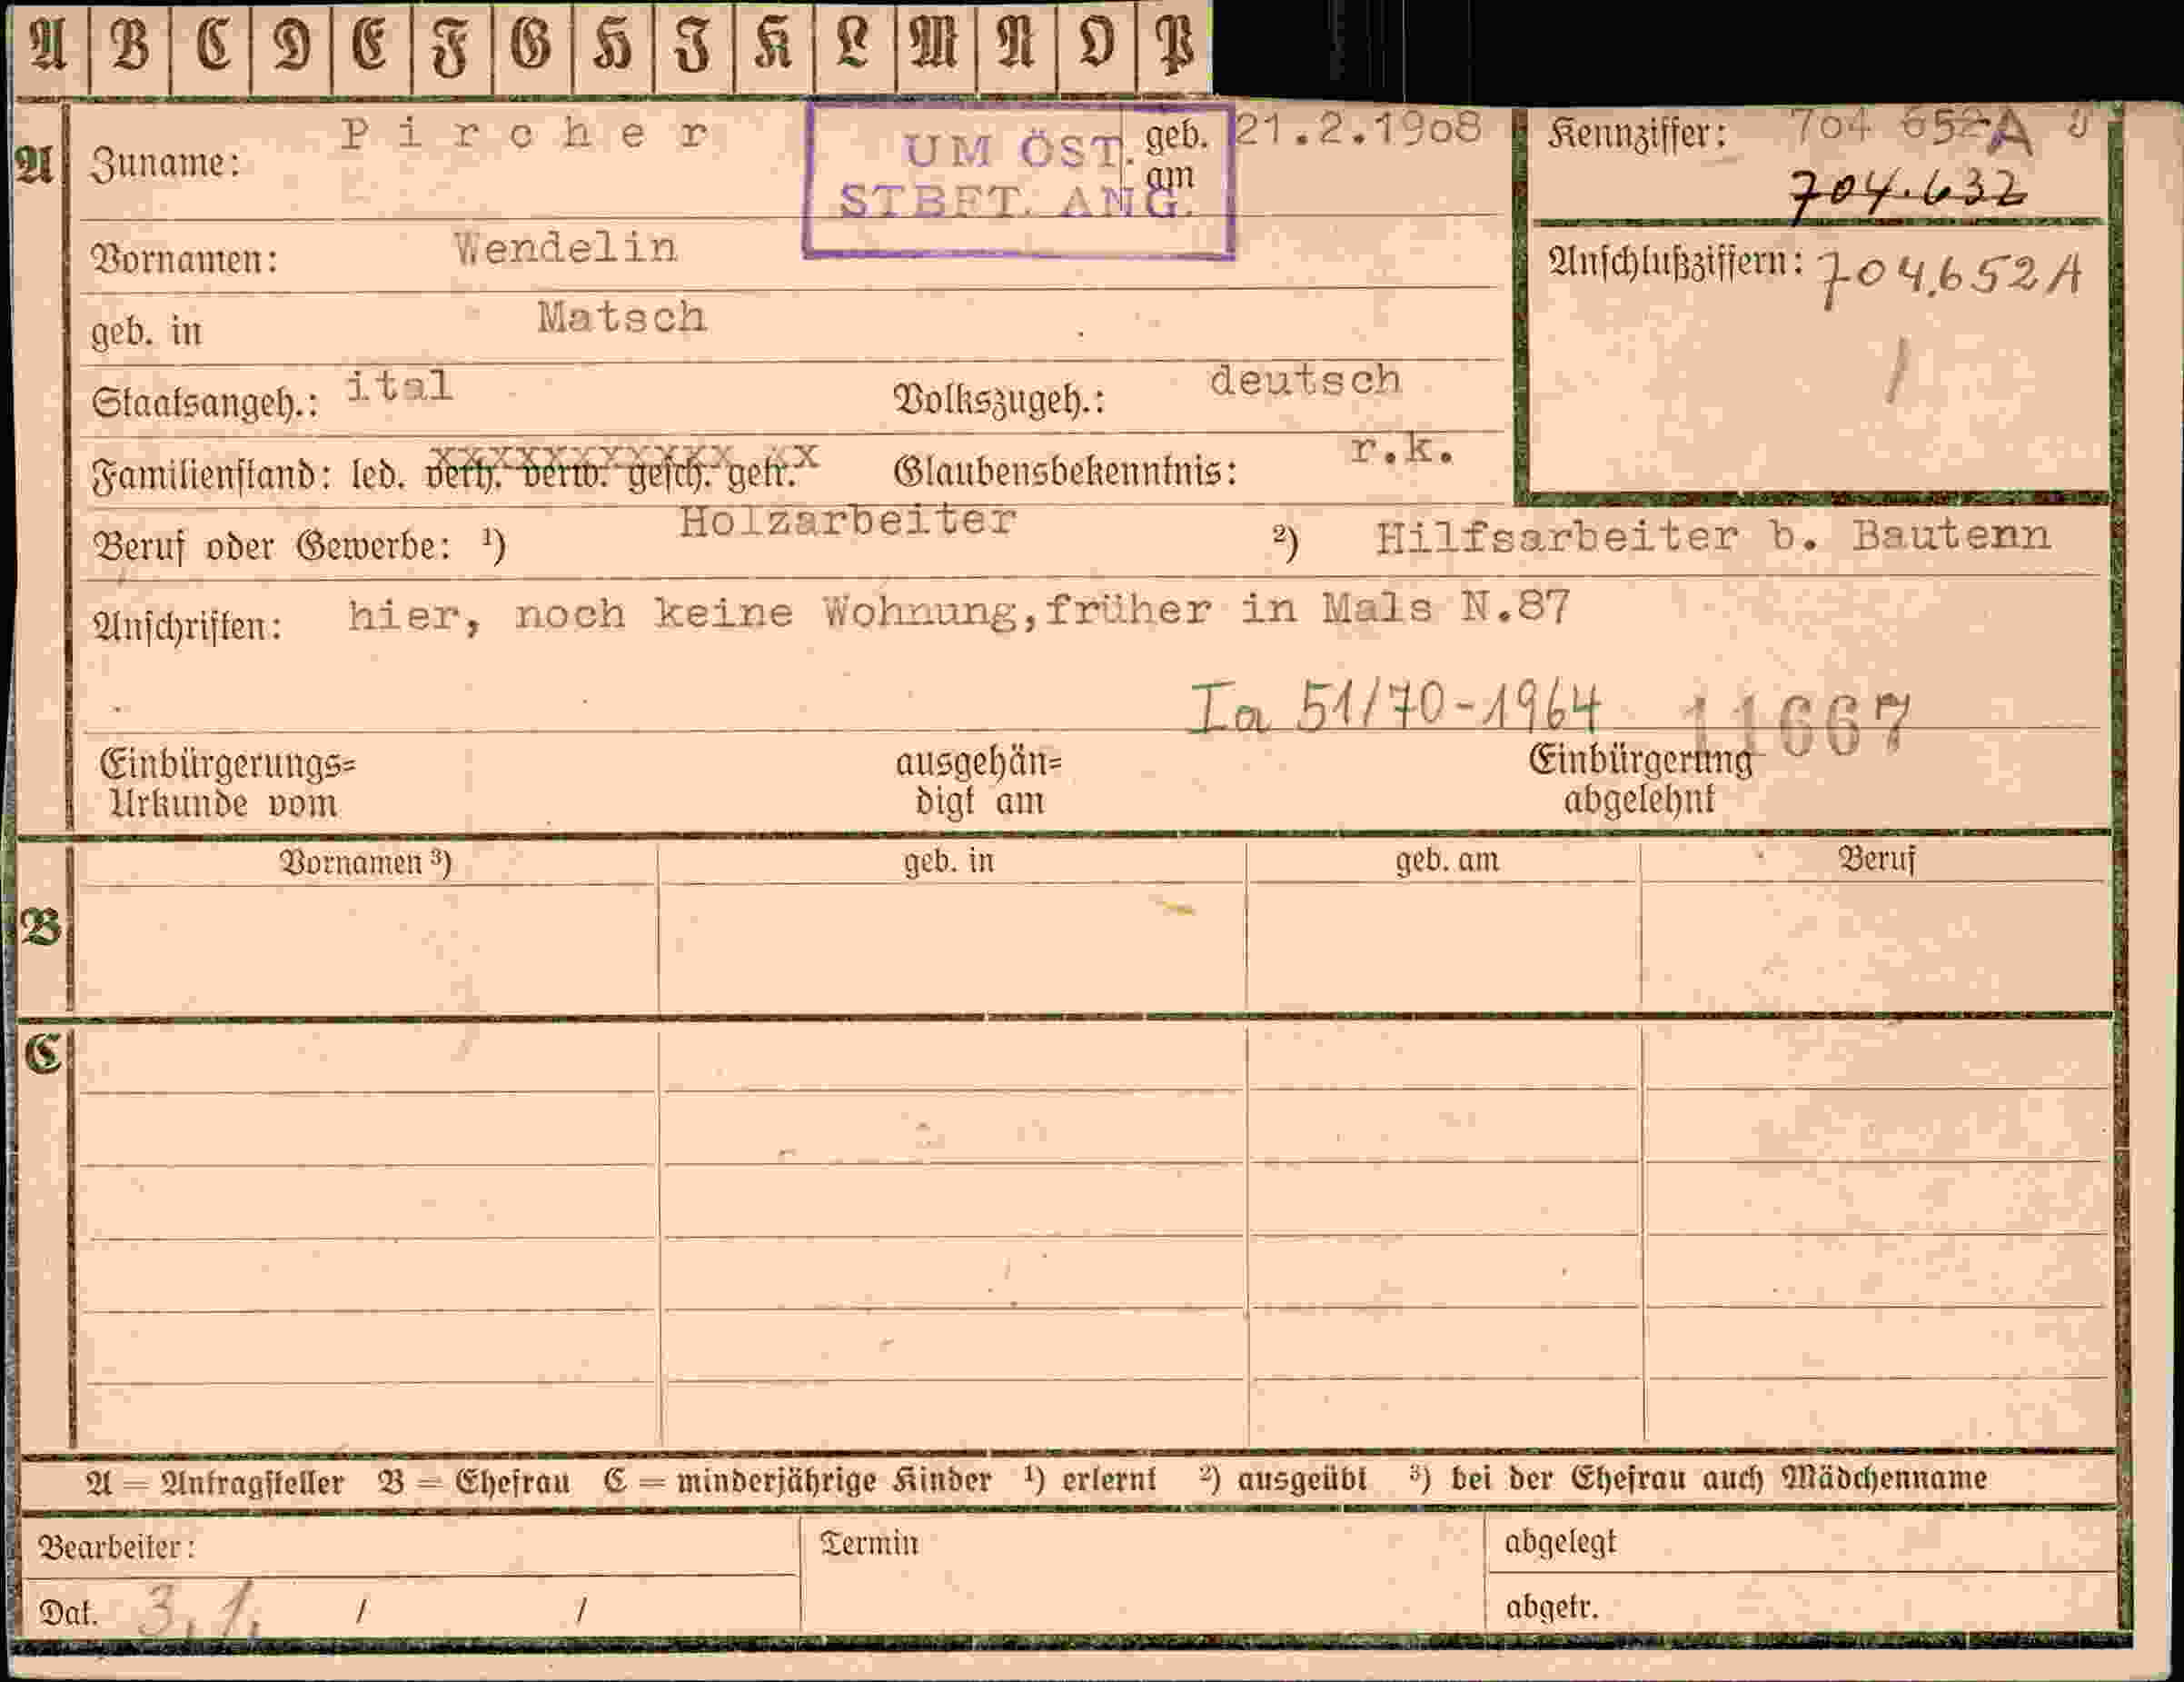 A B C D E F G H I K L M N O P
A Zuname: Pircher geb. am 21.2.19o8
UM ÖST.
STBFT. ANG.
Kennziffer: 7o4 652A
704.632
Vornamen: Wendelin
Anschlußziffern: 704.652A
geb. in Matsch
Staatsangeh.: ital Volkszugeh.: deutsch
Familienstand: led. verh. verw. gesch. getr. Glaubensbekenntnis: r.k.
Beruf oder Gewerbe: ¹) Holzarbeiter ²) Hilfsarbeiter b. Bautenn
Anschriften: hier, noch keine Wohnung,früher in Mals N.87
Ia 51/70-1964 11667
Einbürgerungs= ausgehän= Einbürgerung
Urkunde vom digt am abgelehnt
B Vornamen ³) geb. in geb. am Beruf
C
A = Antragsteller B = Ehefrau C = minderjährige Kinder ¹) erlernt ²) ausgeübt ³) bei der Ehefrau auch Mädchenname
Bearbeiter: Termin abgelegt
Dat. 3.1. / / abgetr.